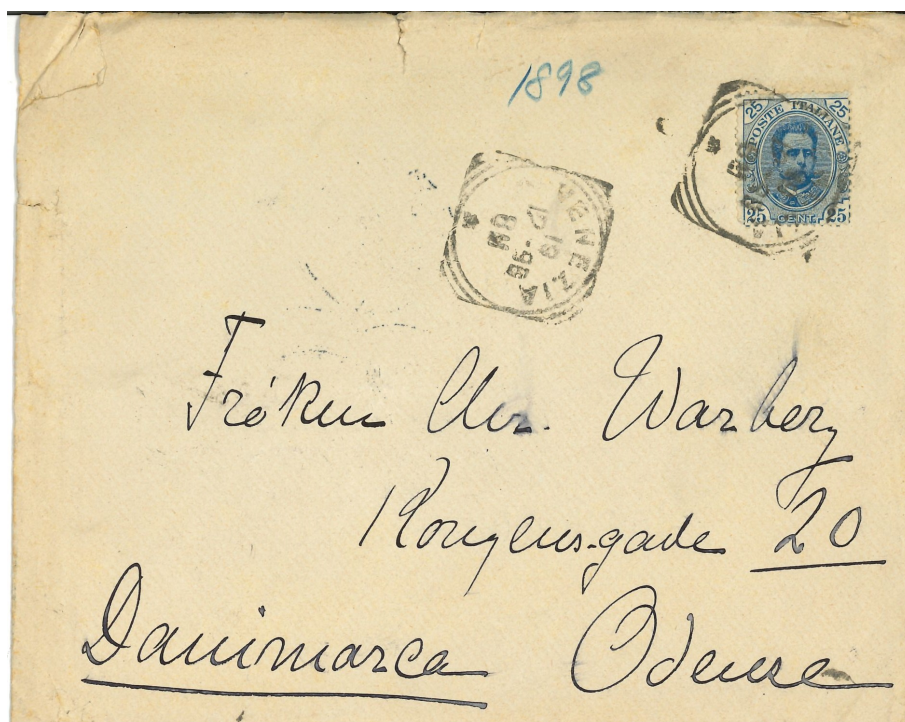 1898
25 25
POSTE ITALIANE
25 CENT. 25
VENEZIA
12
-98
Fröken Chr. Warberg
Kongensgade 20
Danimarca Odense